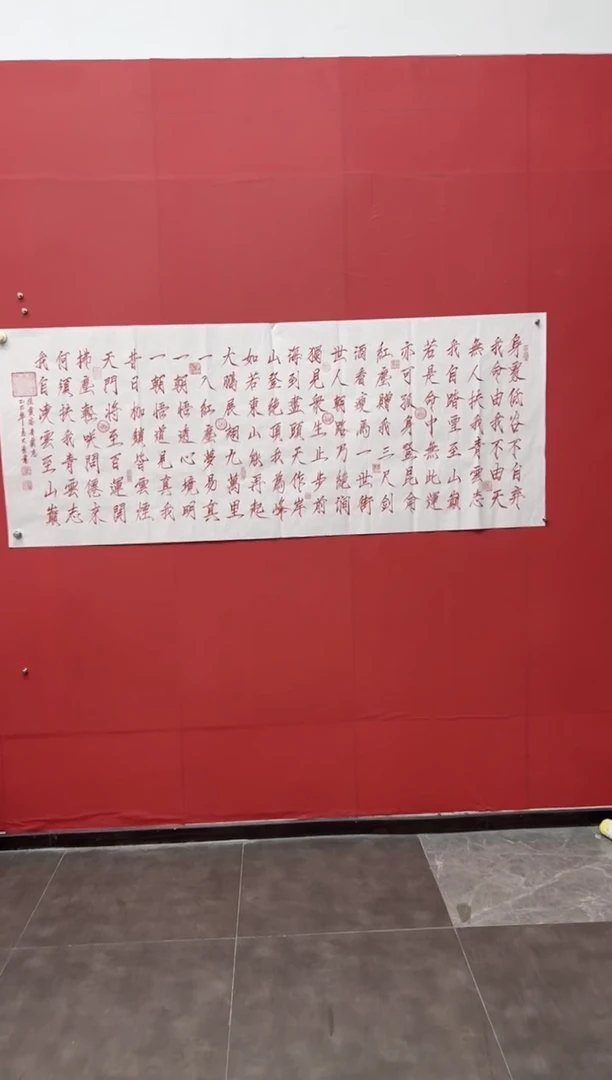 身裂俗谷不自棄
我命由我不由天
無人扶我青雲志
我自踏雪至山巔
若是命中無此運
亦可孤身登昆侖
紅塵贈我三尺劍
酒看瘦馬一世街
世人朝路乃絶澗
獨見衆生止步前
海到盡頭天作岸
山登絶頂我為峰
如若東山能再起
大鵬展翅九萬里
一入紅塵夢易真
一朝悟透心境明
一朝悟道見真我
昔日枷鎖皆雲煙
天門將至百運開
拂塵輕笑問僊來
何須扶我青雲志
我自凌雲至山巔